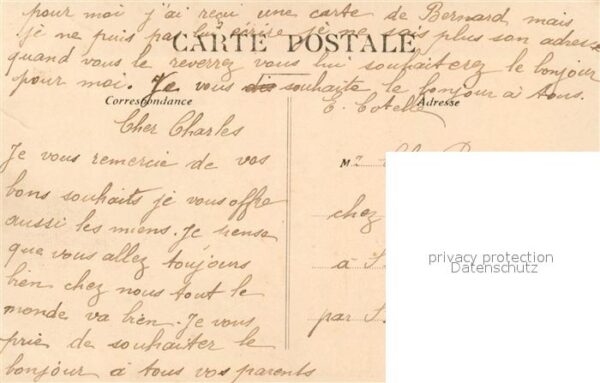 pour moi j'ai reçu une carte de Bernard mais
je ne puis pas lui écrire je ne sais plus son adresse
CARTE POSTALE
quand vous le reverrez vous lui souhaiterez le bonjour
pour moi. Je vous souhaite le bonjour à tous.
E. Cotelle
Correspondance
Adresse
Cher Charles
Je vous remercie de vos
bons souhaits je vous offre
aussi les miens. Je pense
que vous allez toujours
bien chez nous tout le
monde va bien. Je vous
prie de souhaiter le
bonjour à tous vos parents
Mr
chez
à
par
privacy protection
Datenschutz